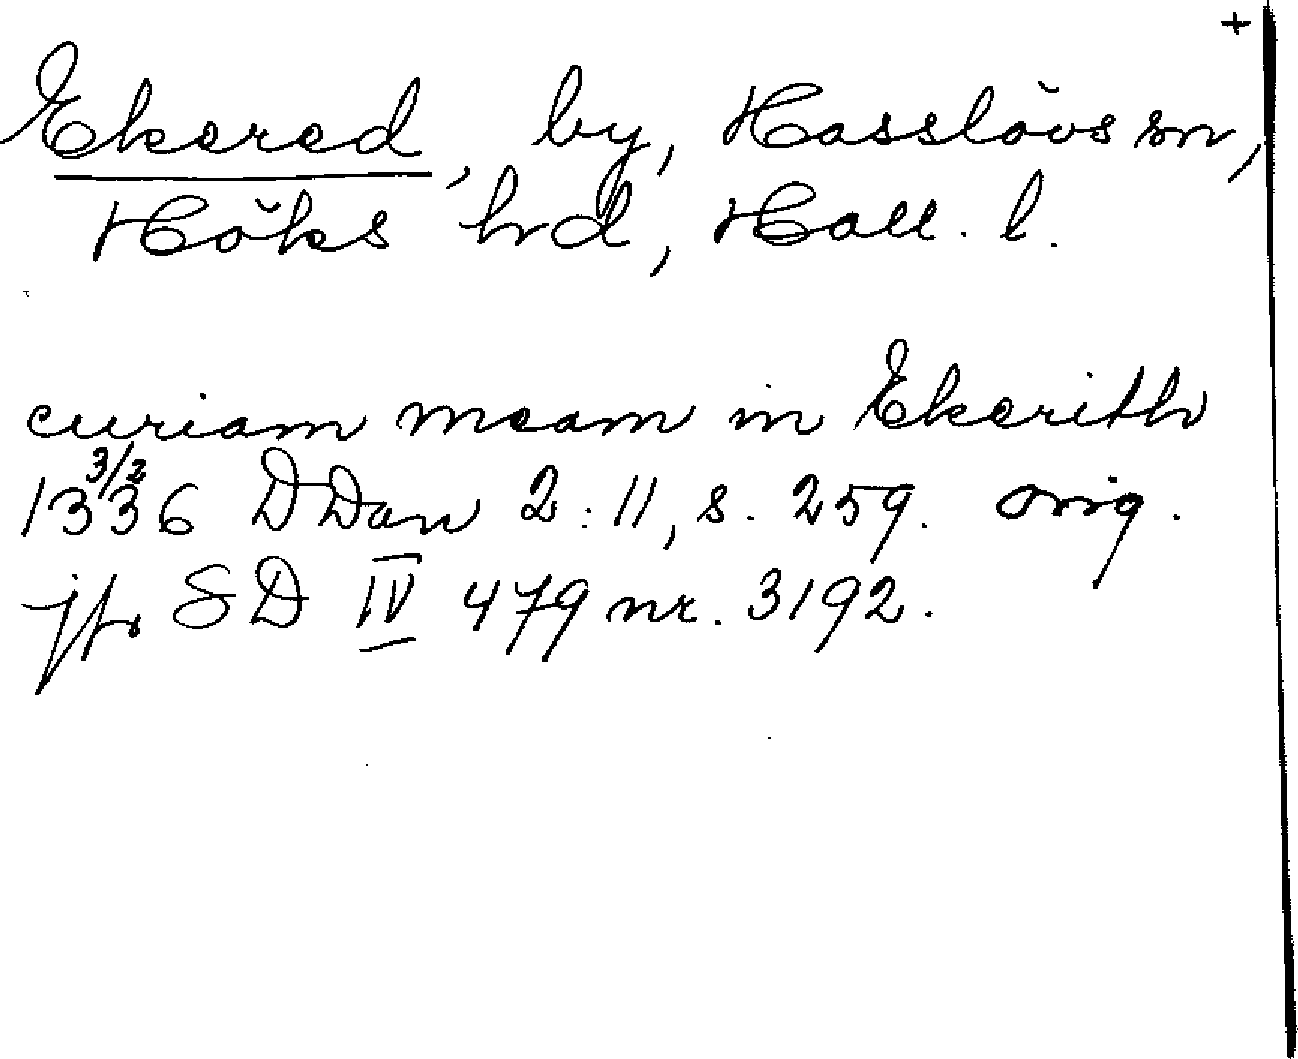 +
Ekered, by, Hasslövs sn,
Höks hd, Hall. l.
curiam meam in Ekerith
13 3/2 36 DDan 2:11, s. 259. orig.
jfr SD IV 479 nr. 3192.